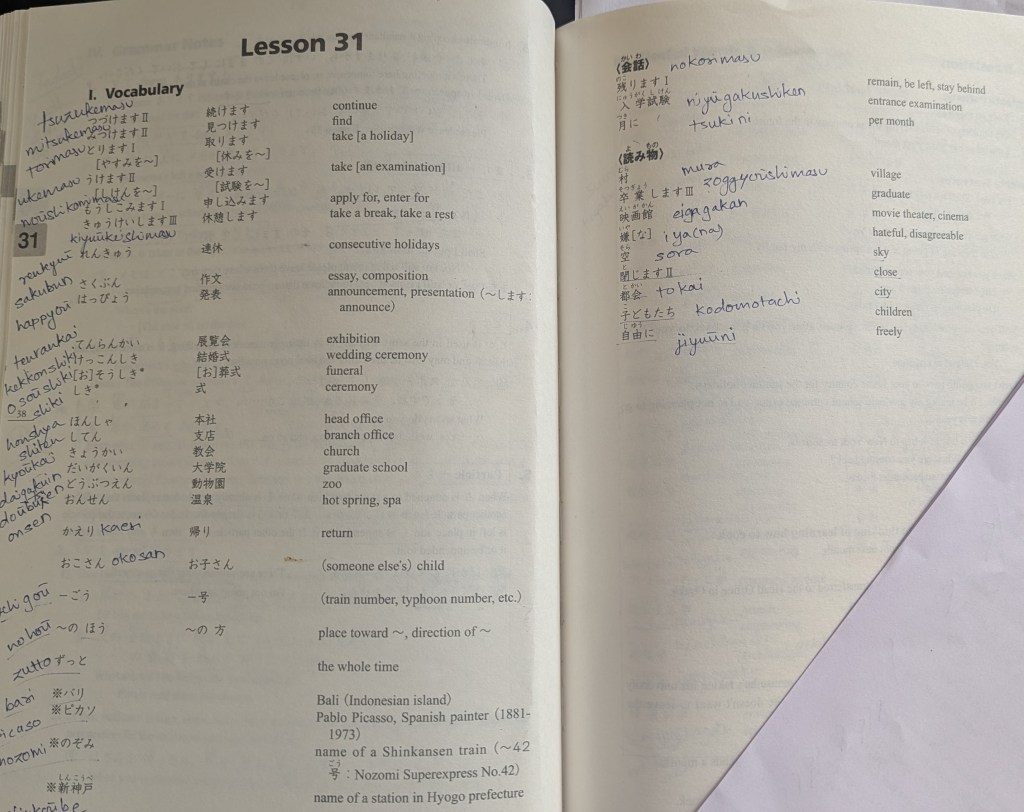 Lesson 31
I. Vocabulary
tsuzukemasu つづけますⅡ 続けます continue
mitsukemasu みつけますⅡ 見つけます find
torimasu とりますⅠ 取ります take [a holiday]
[やすみを～] [休みを～]
ukemasu うけますⅡ 受けます take [an examination]
[しけんを～] [試験を～]
もうしこみますⅠ 申し込みます apply for, enter for
kiyuūkeishimasu きゅうけいしますⅢ 休憩します take a break, take a rest
31
renkyuū れんきゅう 連休 consecutive holidays
sakubun さくぶん 作文 essay, composition
happyoū はっぴょう 発表 announcement, presentation (～します:
announce)
tenrankai てんらんかい 展覧会 exhibition
kekkonshiki けっこんしき 結婚式 wedding ceremony
osoūshiki [お]そうしき* [お]葬式 funeral
shiki しき* 式 ceremony
38
honshya ほんしゃ 本社 head office
shiten してん 支店 branch office
kyoūkai きょうかい 教会 church
daigakuin だいがくいん 大学院 graduate school
どうぶつえん 動物園 zoo
onsen おんせん 温泉 hot spring, spa
かえり kaeri 帰り return
おこさん okosan お子さん (someone else's) child
goū －ごう －号 (train number, typhoon number, etc.)
no hoū ～の ほう ～の 方 place toward ～, direction of ～
zutto ずっと the whole time
bari ※バリ Bali (Indonesian island)
icaso ※ピカソ Pablo Picasso, Spanish painter (1881-
1973)
nozomi ※のぞみ name of a Shinkansen train (～42
ごう
号: Nozomi Superexpress No.42)
しんこうべ
※新神戸 name of a station in Hyogo prefecture
かいわ
〈会話〉 nokorimasu
のこ
残りますⅠ remain, be left, stay behind
にゅうがくしけん
入学試験 niyūgakushiken entrance examination
つき
月に tsukini per month
よ もの
〈読み物〉
むら
村 mura village
そつぎょう
卒業しますⅢ zoggyoūshimasu graduate
えいがかん
映画館 eigagakan movie theater, cinema
いや
嫌[な] iya(na) hateful, disagreeable
そら
空 sora sky
と
閉じますⅡ close
とかい
都会 tokai city
こ
子どもたち kodomotachi children
じゆう
自由に jiyuūni freely